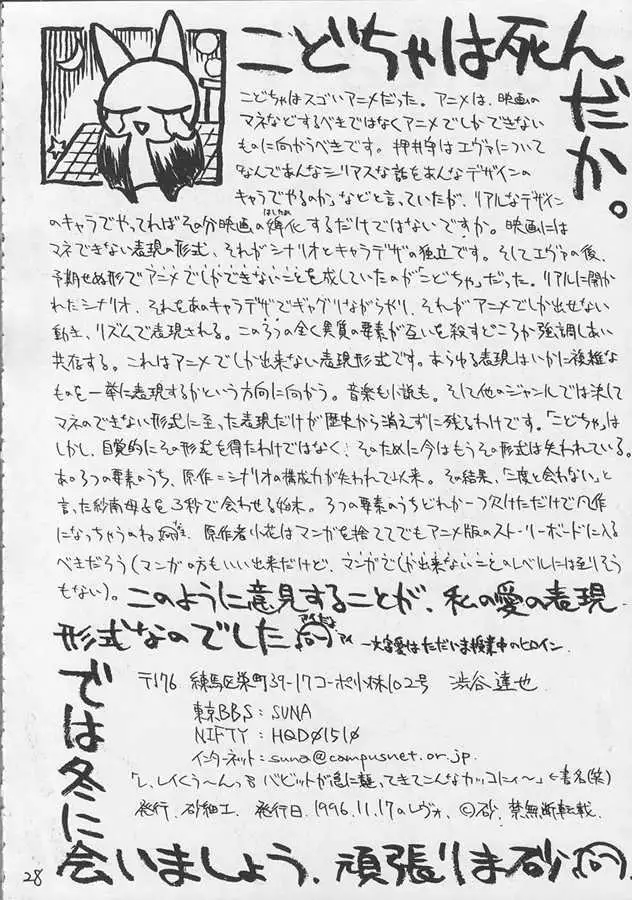 こどちゃは死んだか。
こどちゃはスゴいアニメだった。アニメは、映画の
マネなどするべきではなくアニメでしかできない
ものに向かうべきです。押井守はエヴァについて
「なんであんなシリアスな話をあんなデザインの
キャラでやるのか」などと言っていたが、リアルなデザイン
のキャラでやってればその分映画の化するだけではないですか。映画には
マネできない表現の形式、それがシナリオとキャラデザの独立です。そしてエヴァの後、
予期せぬ形でアニメでしかできないことを成していたのが「こどちゃ」だった。リアルに開か
れたシナリオ、それをあのキャラデザでギャグりながらやり、それがアニメでしか出せない
動き、リズムで表現される。この3つの全く異質の要素が互いを殺すどころか強調しあい
共存する。これはアニメでしか出来ない表現形式です。あらゆる表現はいかに複雑な
ものを一挙に表現するかという方向に向かう。音楽も小説も。そして他のジャンルでは決して
マネのできない形式に至った表現だけが歴史から消えずに残るわけです。「こどちゃ」は
しかし、自覚的にその形式を得たわけではなく、そのために今はもうその形式は失われている。
あの3つの要素のうち、原作=シナリオの構成力が失われて以来。その結果、「二度と会わない」と
言った紗南母子を3秒で会わせる始末。3つの要素のうちどれか一つ欠けただけで凡作
になっちゃうのね 原作者小花はマンガを捨ててでもアニメ版のストーリーボードに入る
べきだろう(マンガの方もいい出来だけど、マンガでしか出来ないことのレベルには至りそう
もない)。このように意見することが、私の愛の表現
形式なのでした ―大宮愛はただいま授業中のヒロイン
〒176 練馬区栄町39-17コーポ小林102号 渋谷達也
東京BBS:SUNA
NIFTY:HQD01510
インターネット:suna@campusnet.or.jp
「レ、レイくう〜んっ バビットが急に襲ってきてこんなカッコにィ〜」←書名(笑)
発行、砂細工 発行日、1996.11.17のレヴォ、©砂、禁無断転載、
では冬に
会いましょう、頑張りま砂
28